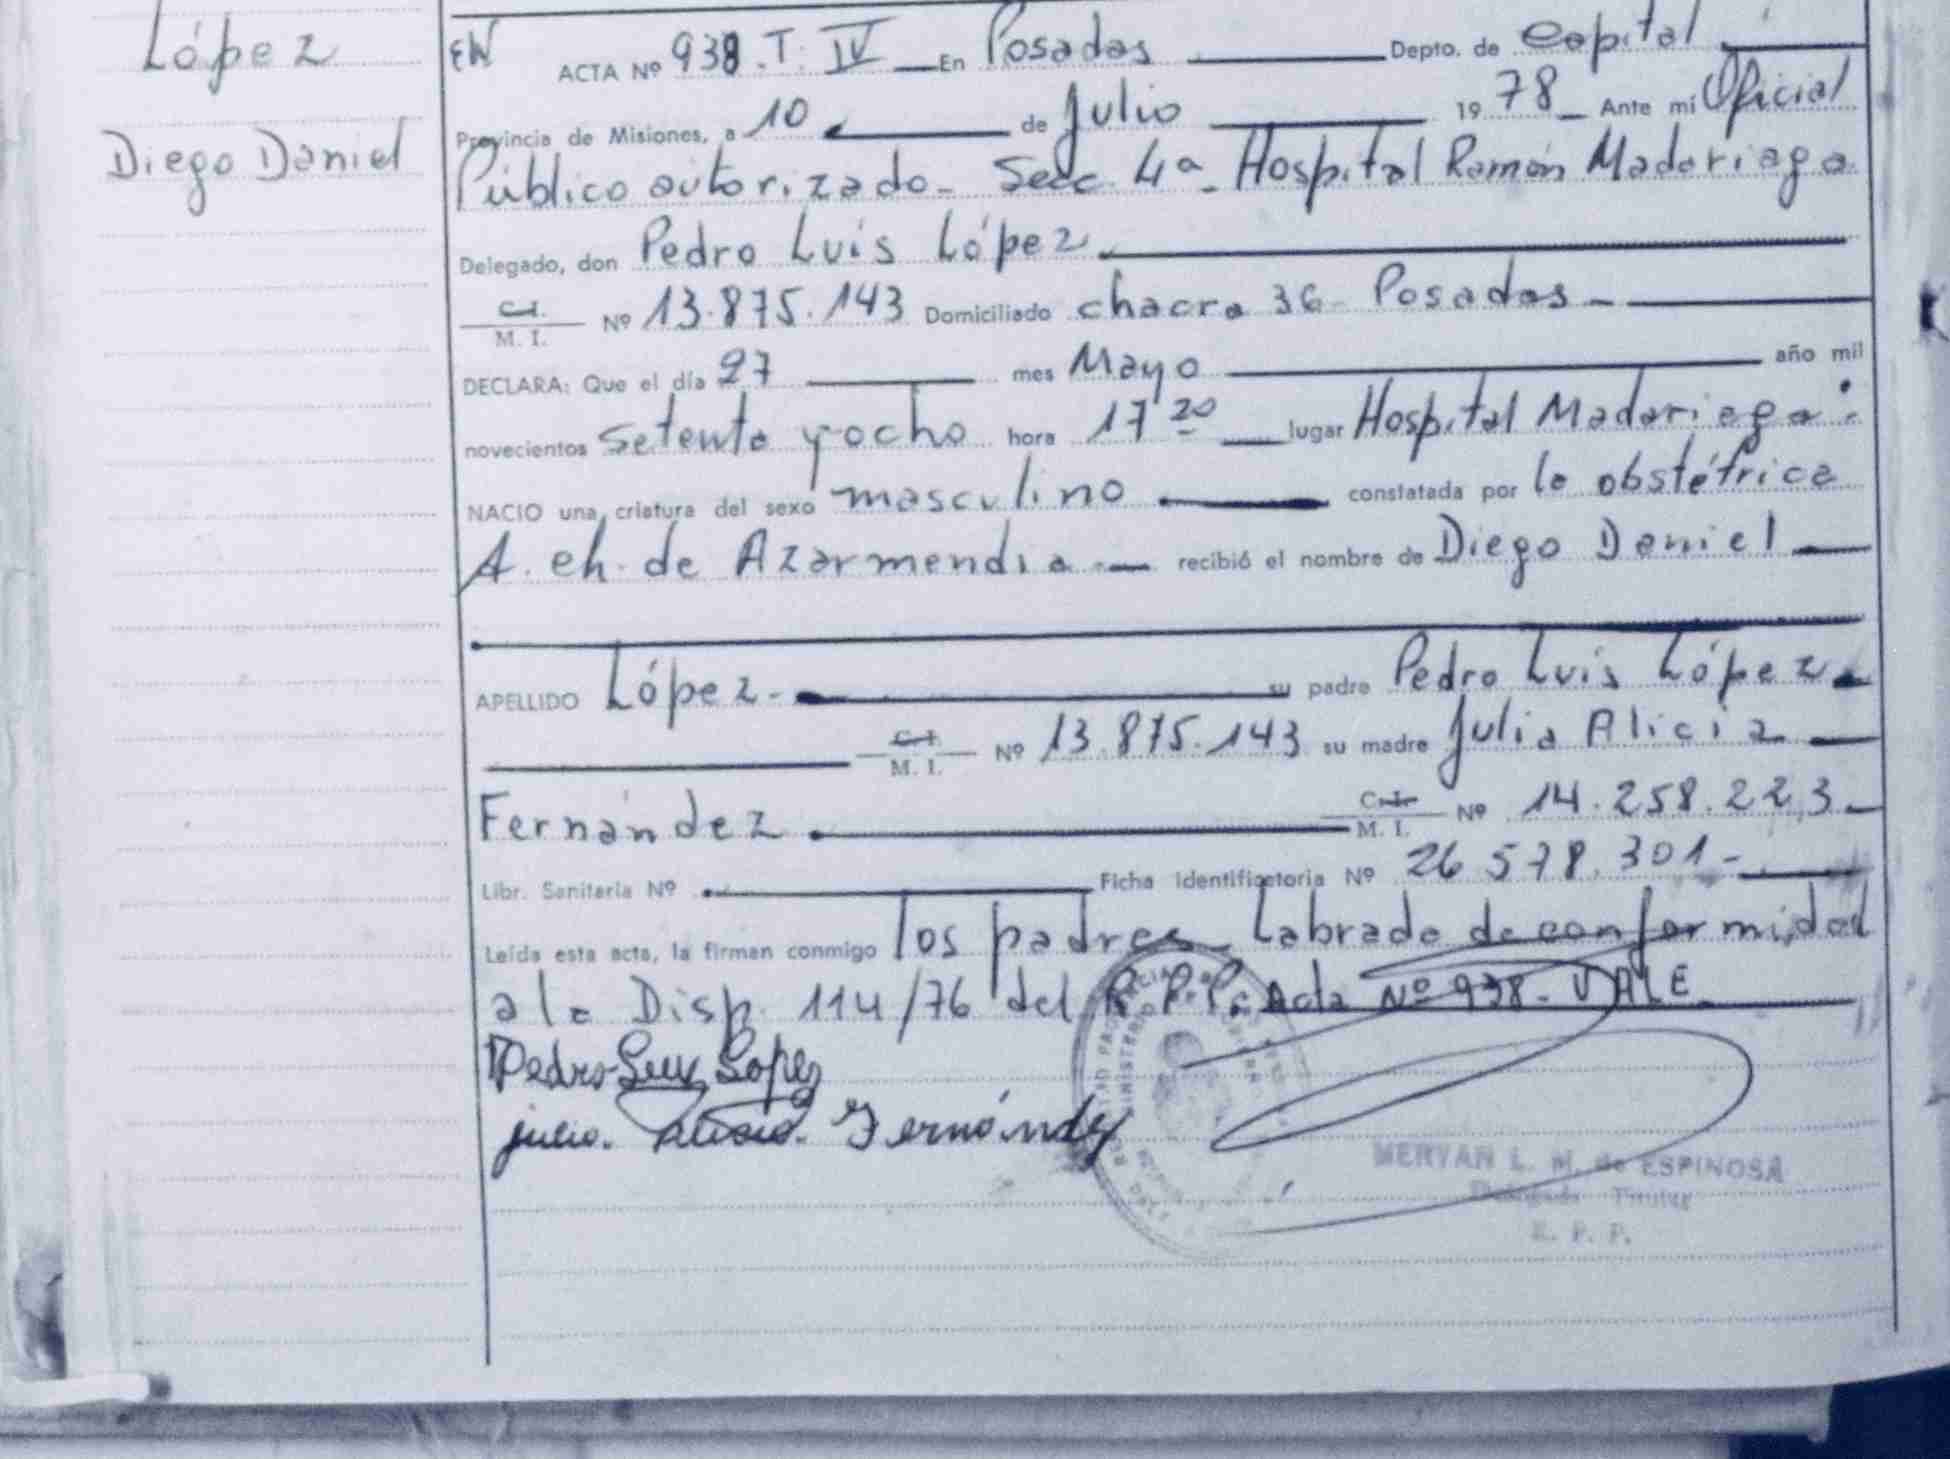 López
Diego Daniel
EW ACTA Nº 938.T. IV En Posadas Depto. de Capital
Provincia de Misiones, a 10 de Julio 1978 Ante mí Oficial
Público autorizado - Secc. 4ª - Hospital Ramón Madariaga
Delegado, don Pedro Luis López
C.I. M. I. Nº 13.875.143 Domiciliado chacra 36 - Posadas -
DECLARA: Que el día 27 mes Mayo año mil
novecientos setenta y ocho hora 17 20 lugar Hospital Madariaga
NACIO una criatura del sexo masculino constatada por la obstétrica
A. Ch. de Azarmendia recibió el nombre de Diego Daniel
APELLIDO López - su padre Pedro Luis López
C.I. M. I. Nº 13.875.143 su madre Julia Alicia
Fernández C.I. M. I. Nº 14.258.223
Libr. Sanitaria Nº Ficha Identificatoria Nº 26 578.301-
Leída esta acta, la firman conmigo los padres - Labrado de conformidad
a la Disp. 114/76 del R.P.P. Acta Nº 938 - VALE
Pedro Luis Lopez
Julia. Alicia. Fernández
MERYAN L. M. de ESPINOSA
Delegada Titular
R. P. P.